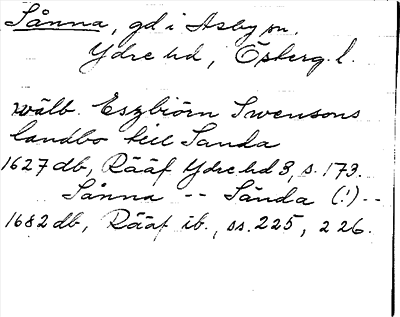 Sånna, gd i Asby sn.
Ydre hd, Österg. l.
wälb. Eszbiörn Swensons
landbo till Sanda
1627 db, Rääf Ydre hd 3, s. 173.
Sånna -- Sånda (!) --
1682 db, Rääf ib., ss. 225, 226.